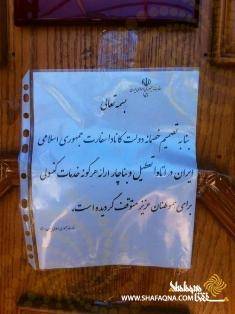 بسمه تعالی
بنا به تصمیم خصمانه دولت کانادا سفارت جمهوری اسلامی
ایران در اتاوا تعطیل و بناچار ارائه هرگونه خدمات کنسولی
برای هموطنان عزیز متوقف گردیده است.
شفقنا
WWW.SHAFAQNA.COM